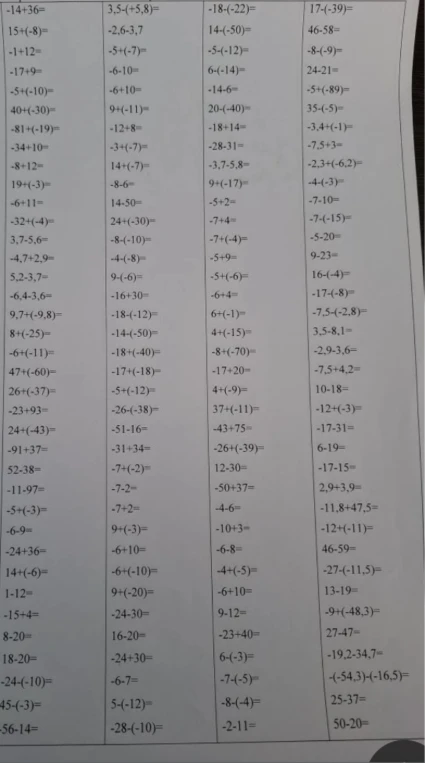 -14+36=
15+(-8)=
-1+12=
-17+9=
-5+(-10)=
40+(-30)=
-81+(-19)=
-34+10=
-8+12=
19+(-3)=
-6+11=
-32+(-4)=
3,7-5,6=
-4,7+2,9=
5,2-3,7=
-6,4-3,6=
9,7+(-9,8)=
8+(-25)=
-6+(-11)=
47+(-60)=
26+(-37)=
-23+93=
24+(-43)=
-91+37=
52-38=
-11-97=
-5+(-3)=
-6-9=
-24+36=
14+(-6)=
1-12=
-15+4=
8-20=
18-20=
-24-(-10)=
45-(-3)=
-56-14=
3,5-(+5,8)=
-2,6-3,7
-5+(-7)=
-6-10=
-6+10=
9+(-11)=
-12+8=
-3+(-7)=
14+(-7)=
-8-6=
14-50=
24+(-30)=
-8-(-10)=
-4-(-8)=
9-(-6)=
-16+30=
-18-(-12)=
-14-(-50)=
-18+(-40)=
-17+(-18)=
-5+(-12)=
-26-(-38)=
-51-16=
-31+34=
-7+(-2)=
-7-2=
-7+2=
9+(-3)=
-6+10=
-6+(-10)=
9+(-20)=
-24-30=
16-20=
-24+30=
-6-7=
5-(-12)=
-28-(-10)=
-18-(-22)=
14-(-50)=
-5-(-12)=
6-(-14)=
-14-6=
20-(-40)=
-18+14=
-28-31=
-3,7-5,8=
9+(-17)=
-5+2=
-7+4=
-7+(-4)=
-5+9=
-5+(-6)=
-6+4=
6+(-1)=
4+(-15)=
-8+(-70)=
-17+20=
4+(-9)=
37+(-11)=
-43+75=
-26+(-39)=
12-30=
-50+37=
-4-6=
-10+3=
-6-8=
-4+(-5)=
-6+10=
9-12=
-23+40=
6-(-3)=
-7-(-5)=
-8-(-4)=
-2-11=
17-(-39)=
46-58=
-8-(-9)=
24-21=
-5+(-89)=
35-(-5)=
-3,4+(-1)=
-7,5+3=
-2,3+(-6,2)=
-4-(-3)=
-7-10=
-7-(-15)=
-5-20=
9-23=
16-(-4)=
-17-(-8)=
-7,5-(-2,8)=
3,5-8,1=
-2,9-3,6=
-7,5+4,2=
10-18=
-12+(-3)=
-17-31=
6-19=
-17-15=
2,9+3,9=
-11,8+47,5=
-12+(-11)=
46-59=
-27-(-11,5)=
13-19=
-9+(-48,3)=
27-47=
-19,2-34,7=
-(-54,3)-(-16,5)=
25-37=
50-20=